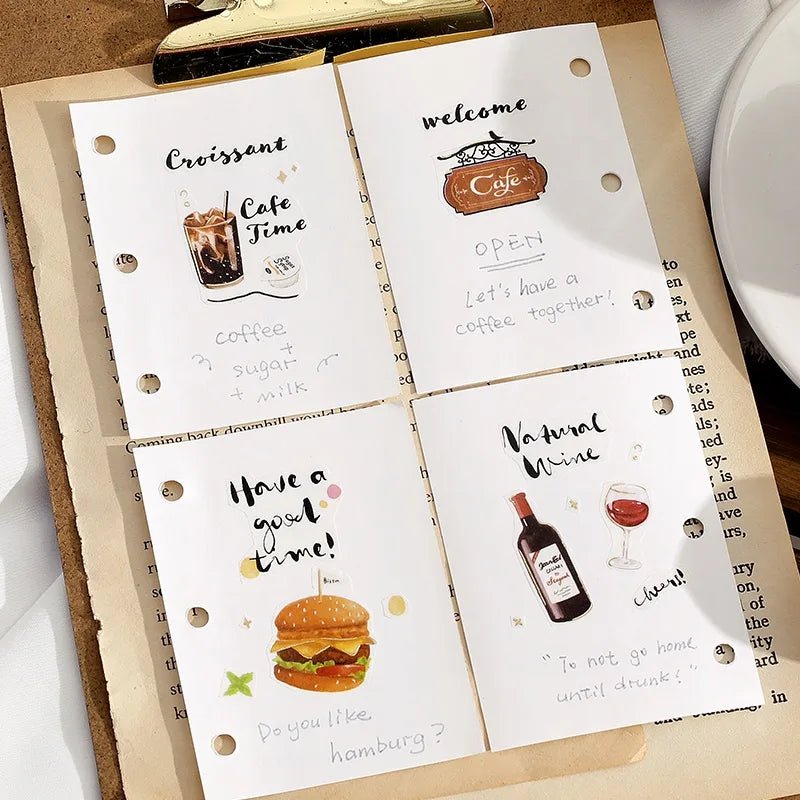 Croissant
Cafe
Time
coffee
+
sugar
+ milk
welcome
Cafe
OPEN
Let's have a
coffee together!
Have a
good
time!
Bistro
Do you like
hamburg?
Natural
Wine
CELLARS
cheers!
"To not go home
until drunk!"
Coming back downhill would be